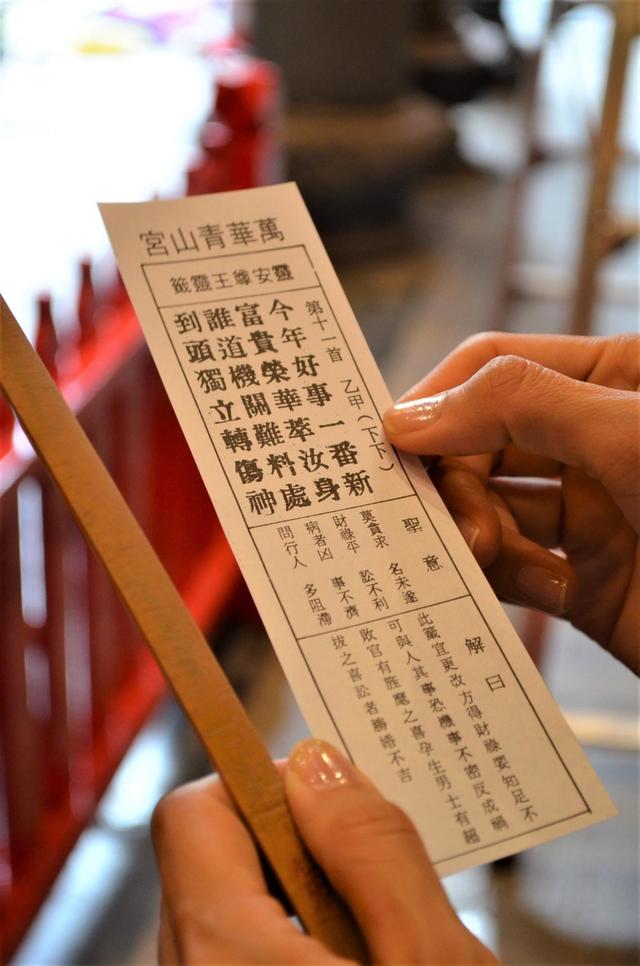 萬華青山宮
靈安尊王靈籤
第十一首 乙甲(下下)
今年好事一番新
富貴榮華萃汝身
誰道機關難料處
到頭獨立轉傷神
聖意
莫貪求 名未遂
財祿平 訟不利
病者凶 事不濟
問行人 多阻滯
解曰
此籤宜更改方得財祿要知足不
可與人其事恐機事不密反成禍
敗官有旌麾之喜孕生男士有超
拔之喜訟者勝婚不吉